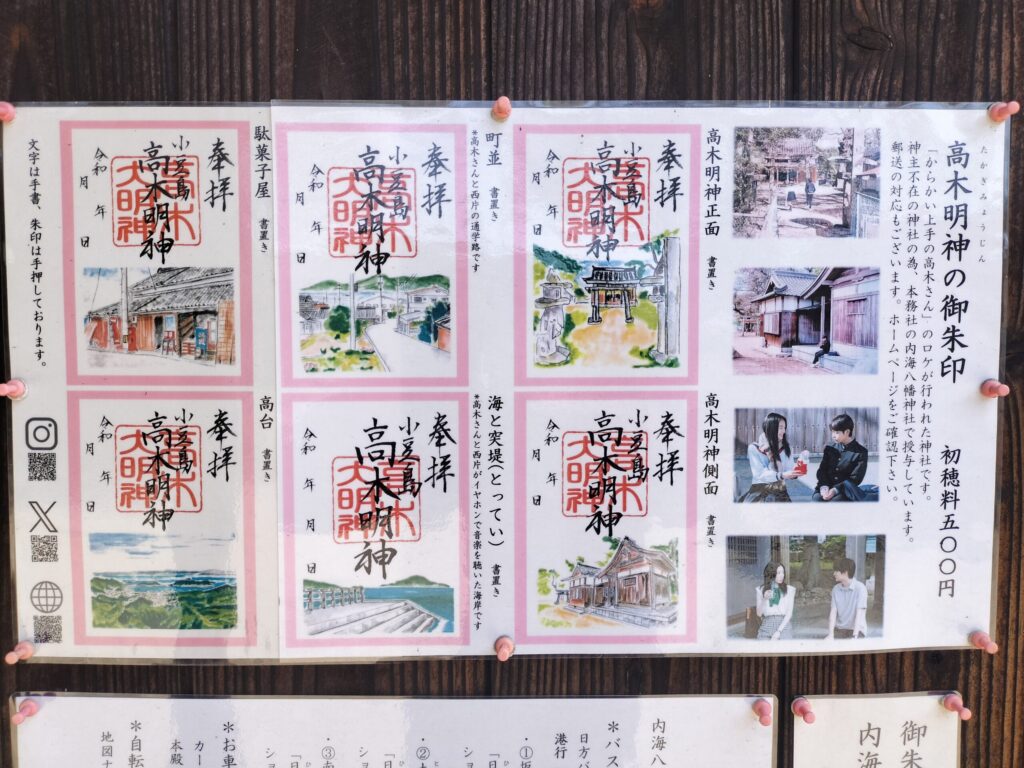 高木明神の御朱印　初穂料五〇〇円
たかぎみょうじん
「からかい上手の高木さん」のロケが行われた神社です。
神主不在の神社の為、本務社の内海八幡神社で授与しています。
郵送の対応もございます。ホームページをご確認下さい。
高木明神正面　書置き
奉拝
小豆島
高木明神
高木大明神
令和　年　月　日
高木明神側面　書置き
奉拝
小豆島
高木明神
高木大明神
令和　年　月　日
町並　書置き
*高木さんと西片の通学路です
奉拝
小豆島
高木明神
高木大明神
令和　年　月　日
海と突堤(とってい)　書置き
*高木さんと西片がイヤホンで音楽を聴いた海岸です
奉拝
小豆島
高木明神
高木大明神
令和　年　月　日
駄菓子屋　書置き
奉拝
小豆島
高木明神
高木大明神
令和　年　月　日
高台　書置き
奉拝
小豆島
高木明神
高木大明神
令和　年　月　日
文字は手書、朱印は手押しております。
X
御朱
内海
内海八
*バス
日方バ
港行
・①
・②
・③
*お車
カー
本殿
*自転
地図